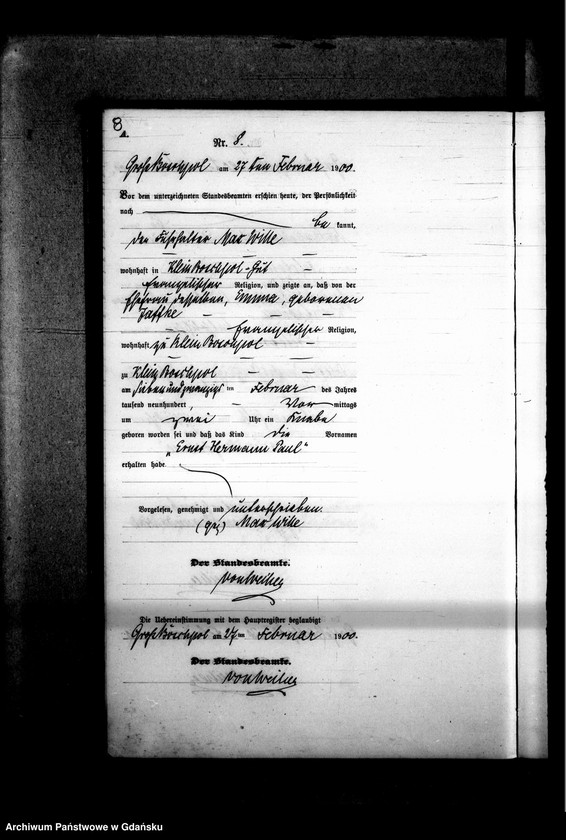 8
A.
Nr. 8.
Groß Boschpol am 27ten Februar 1900.
Vor dem unterzeichneten Standesbeamten erschien heute, der Persönlichkeit
nach be kannt,
der Max Wille
wohnhaft in Klein Boschpol-Gut
evangelischer Religion, und zeigte an, daß von der
Ehefrau desselben, Emma, geborenen
Jaffke
evangelischer Religion,
wohnhaft zu Klein Boschpol
zu Klein Boschpol
am siebenundzwanzigsten Februar des Jahres
tausend neunhundert, Vor mittags
um zwei Uhr ein Knabe
geboren worden sei und daß das Kind die Vornamen
„Ernst Hermann Paul"
erhalten habe
Vorgelesen, genehmigt und unterschrieben.
(gez) Max Wille
Der Standesbeamte.
Die Uebereinstimmung mit dem Hauptregister beglaubigt
Groß Boschpol am 27ten Februar 1900.
Der Standesbeamte.
Archiwum Państwowe w Gdańsku